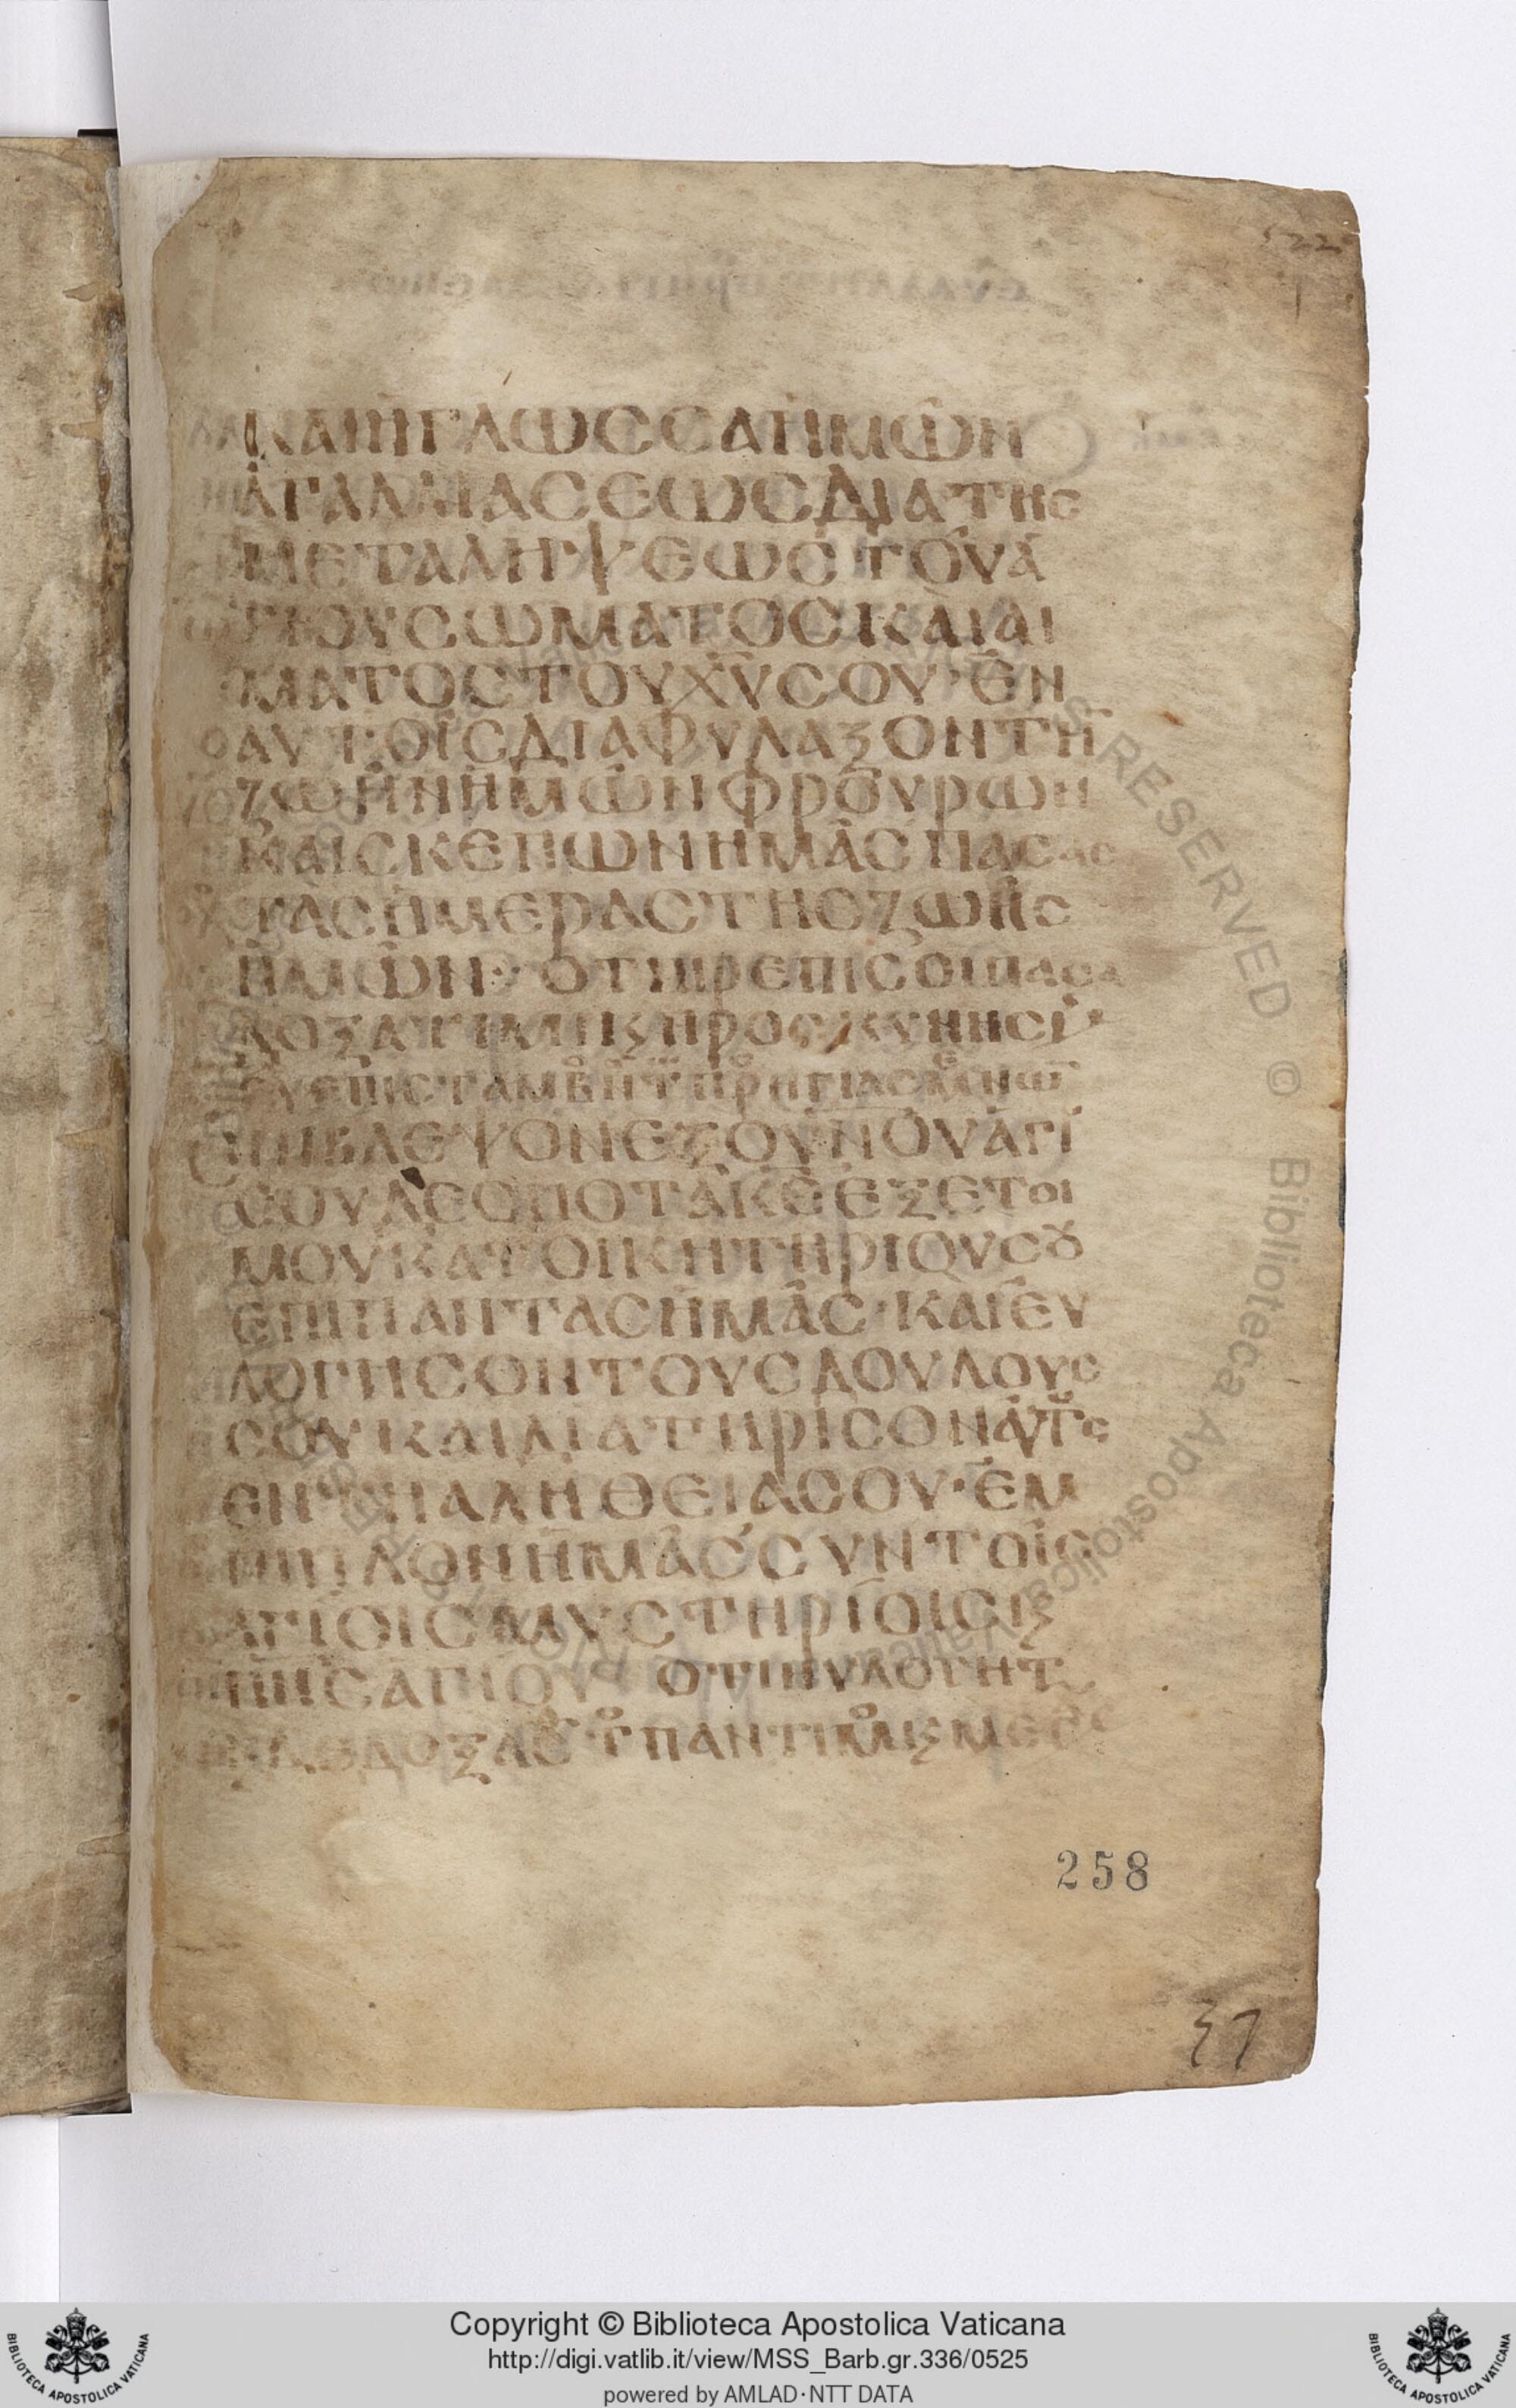 ΚΑΙΗΓΛΩΣΣΑΗΜΩΝ
ΑΓΑΛΛΙΑΣΕΩΣΔΙΑΤΗς
ΜΕΤΑΛΗΨΕΩΣΤΟΥΑ
ΓΙΟΥΣΩΜΑΤΟΣΚΑΙΑΙ
ΜΑΤΟΣΤΟΥΧ̅Υ̅ΣΟΥ· ΕΝ
ΑΥΤΟΙΣΔΙΑΦΥΛΑΞΟΝΤΗ̅
ΖΩΗΝΗΜΩΝΦΡΟΥΡΩΝ
ΚΑΙΣΚΕΠΩΝΗΜΑΣΠΑΣΑΣ
ΤΑΣΗΜΕΡΑΣΤΗΣΖΩΗΣ
ΗΜΩΝ· ΟΤΙΠΡΕΠΙΣΟΙΠΑΣΑ
ΔΟΞΑΤΙΜΗϗΠΡΟΣΚΥΝΗΣΙ
ΕΠΙΒΛΕΨΟΝΕΞΟΥΝΟΥΑΓΙ
ΣΟΥΔΕΣΠΟΤΑΚ̅Ε̅ΕΞΕΤΟΙ
ΜΟΥΚΑΤΟΙΚΗΤΗΡΙΟΥΣȣ
ΕΠΙΠΑΝΤΑΣΗΜΑΣ· ΚΑΙΕΥ
ΛΟΓΗΣΟΝΤΟΥΣΔΟΥΛΟΥΣ
ΣΟΥΚΑΙΔΙΑΤΗΡΙΣΟΝΑΥΤȣΣ
ΕΝΤΗΑΛΗΘΕΙΑΣΟΥ· ΕΜ
ΠΙΠΛΟΝΗΜΑΣΣΥΝΤΟΙΣ
ΑΓΙΟΙΣΜΥΣΤΗΡΙΟΙΣϗ
258
37
S RESERVED © Biblioteca Apostolica Vaticana
Copyright © Biblioteca Apostolica Vaticana
http://digi.vatlib.it/view/MSS_Barb.gr.336/0525
powered by AMLAD·NTT DATA
BIBLIOTECA APOSTOLICA VATICANA
BIBLIOTECA APOSTOLICA VATICANA